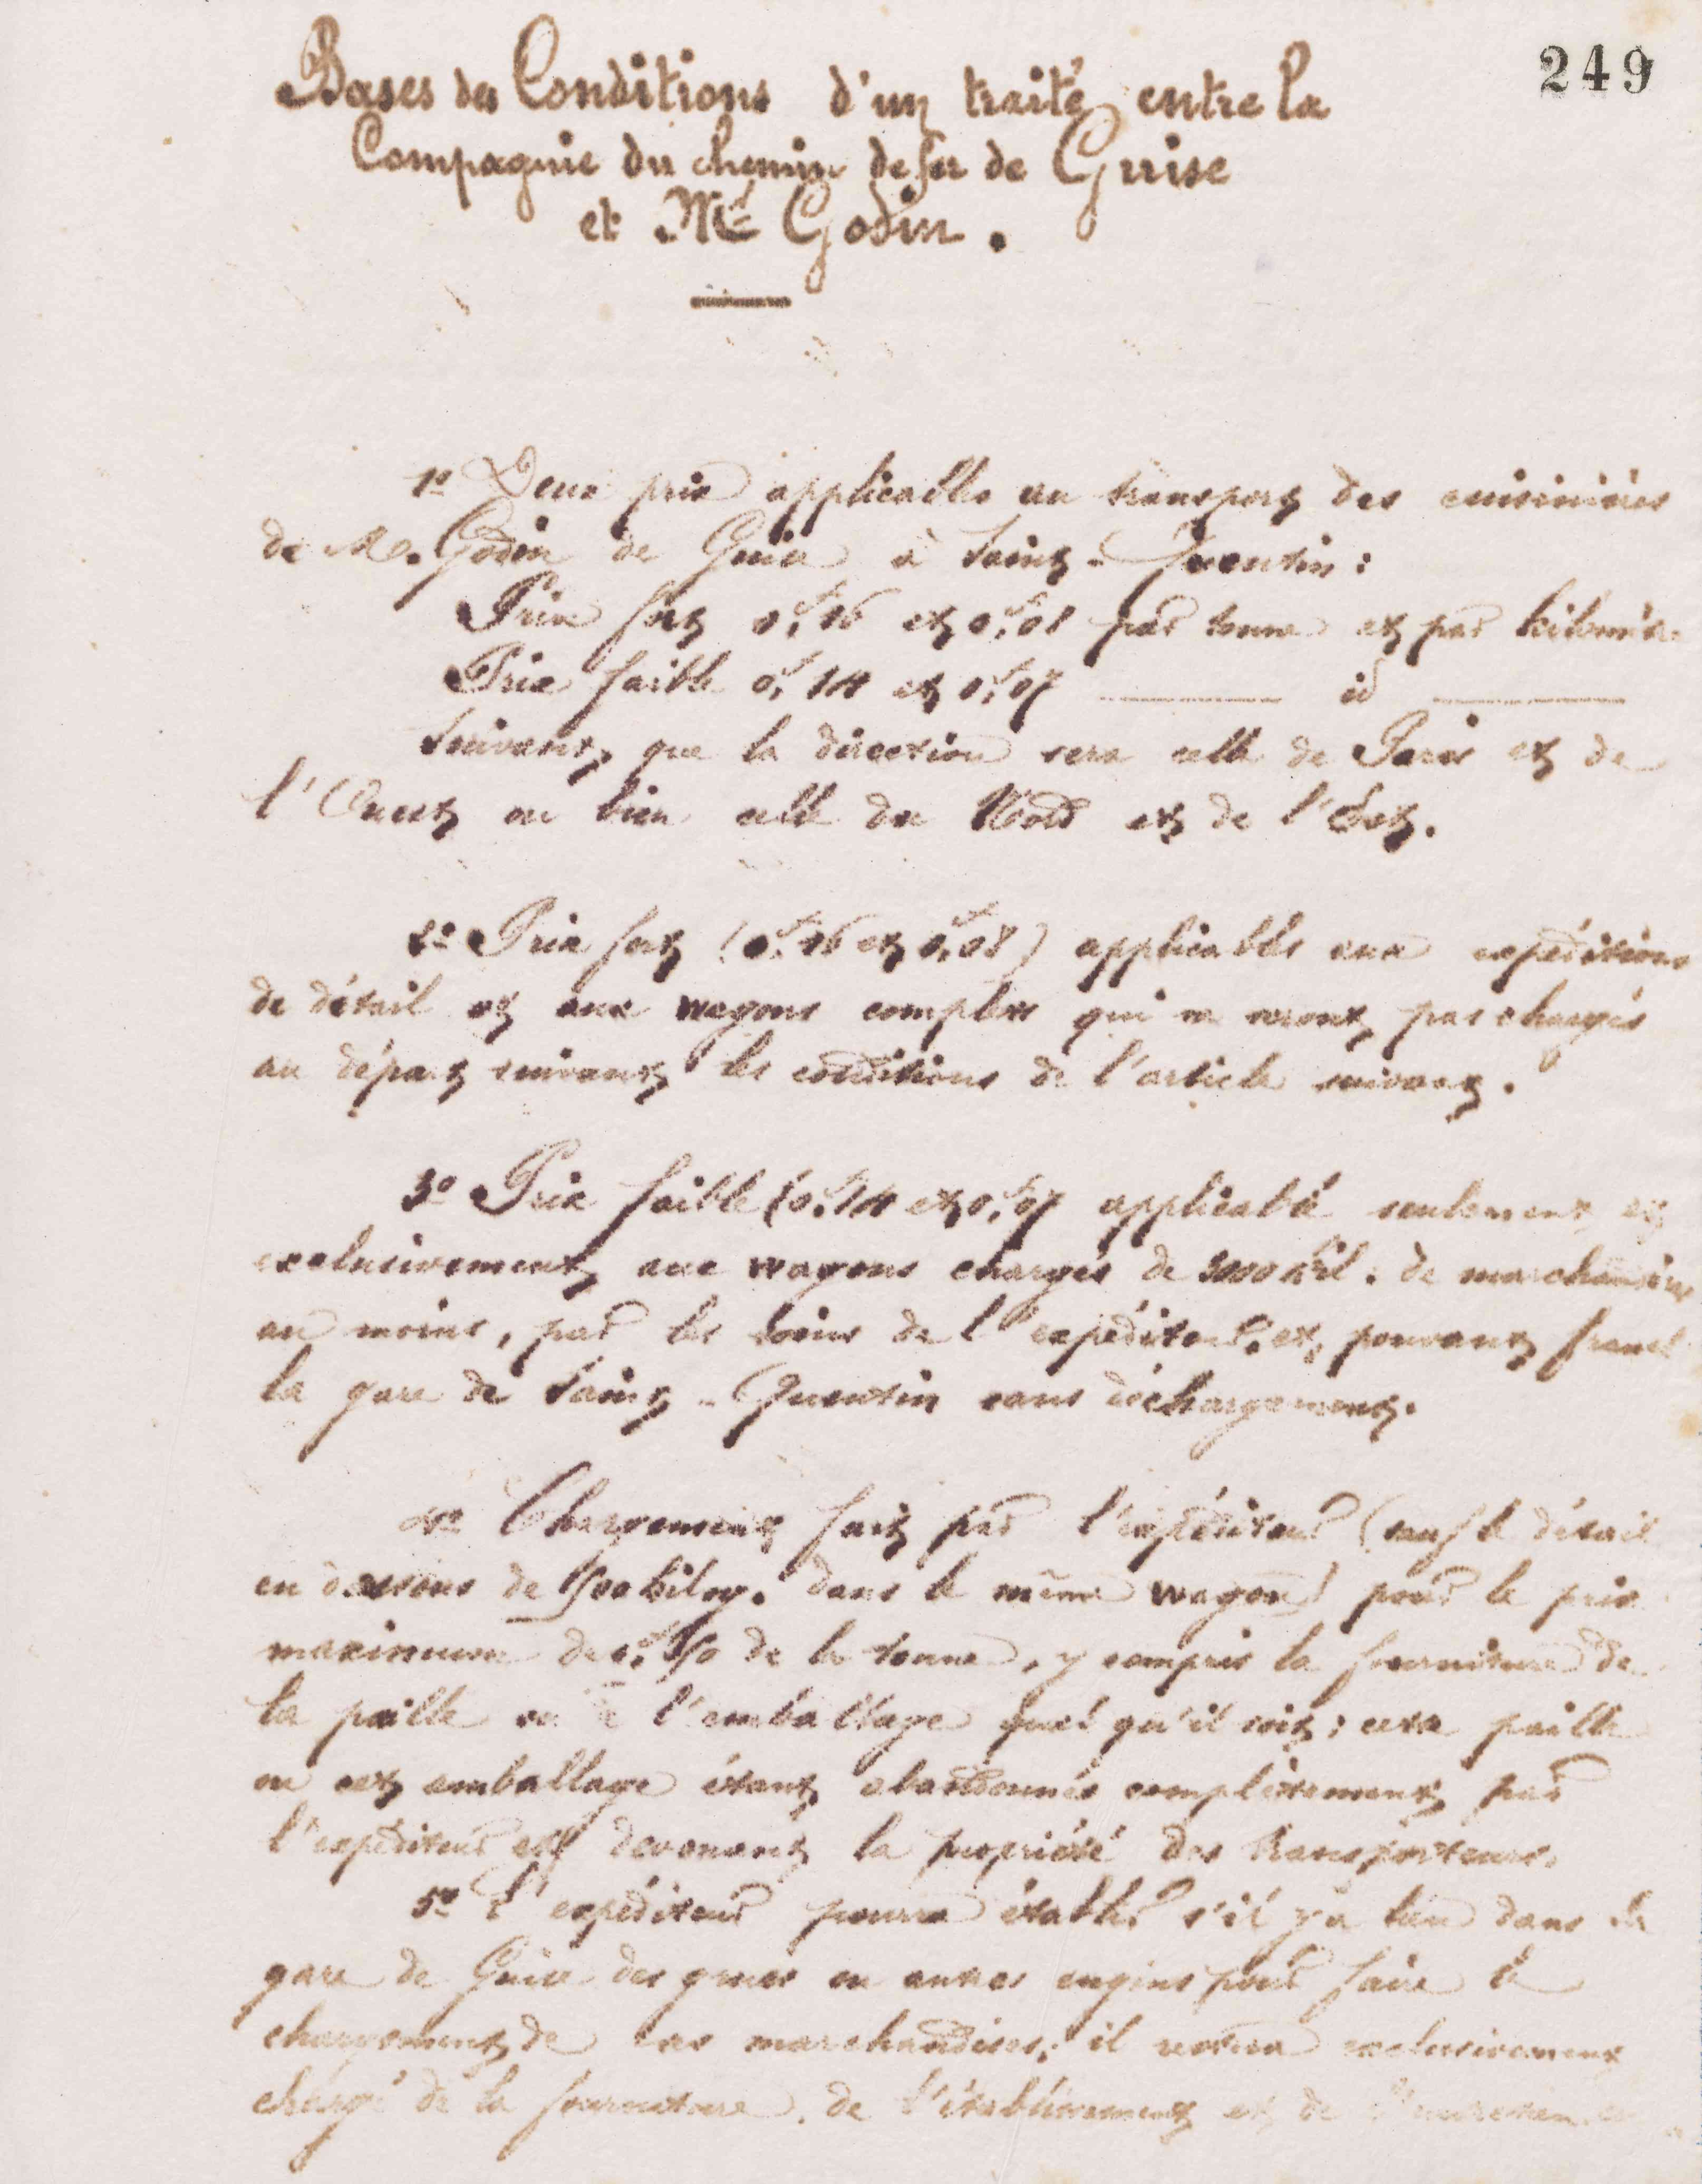 249
Bases des Conditions d'un traité entre la
Compagnie du chemin de fer de Guise
et Mr Godin.
1º Deux prix applicables au transport des cuisinières
de M. Godin de Guise à Saint-Quentin :
Prix fort 0,f16 et 0,f08 par tonne et par kilomètre
Prix faible 0,f14 et 0,f07 id
Suivant que la direction sera celle de Paris et de
l'Ouest ou bien celle du Nord et de l'Est.
2º Prix fort (0,f16 et 0,f08) applicables aux expéditions
de détail et aux wagons complets qui ne seront pas chargés
au départ suivant les conditions de l'article suivant.
3º Prix faible (0,f14 et 0,f07 applicable seulement et
exclusivement aux wagons chargés de 3000 kil. de marchandises
au moins, par les soins de l'expéditeur, et pouvant
la gare de Saint-Quentin sans déchargement.
4º Chargement fait par l'expéditeur (sauf le détail
en dessous de 500 kilog. dans le même wagon) pour le prix
maximum de de la tonne, y compris la fourniture de
la paille ou de l'emballage quel qu'il soit ; cette paille
ou cet emballage étant abandonnés complètement par
l'expéditeur et devenant la propriété des transporteurs.
5º L'expéditeur pourra établir s'il y a lieu dans la
gare de Guise des grues ou autres engins pour faire le
chargement de ses marchandises ; il restera exclusivement
chargé de la fourniture, de l'établissement et de l'entretien